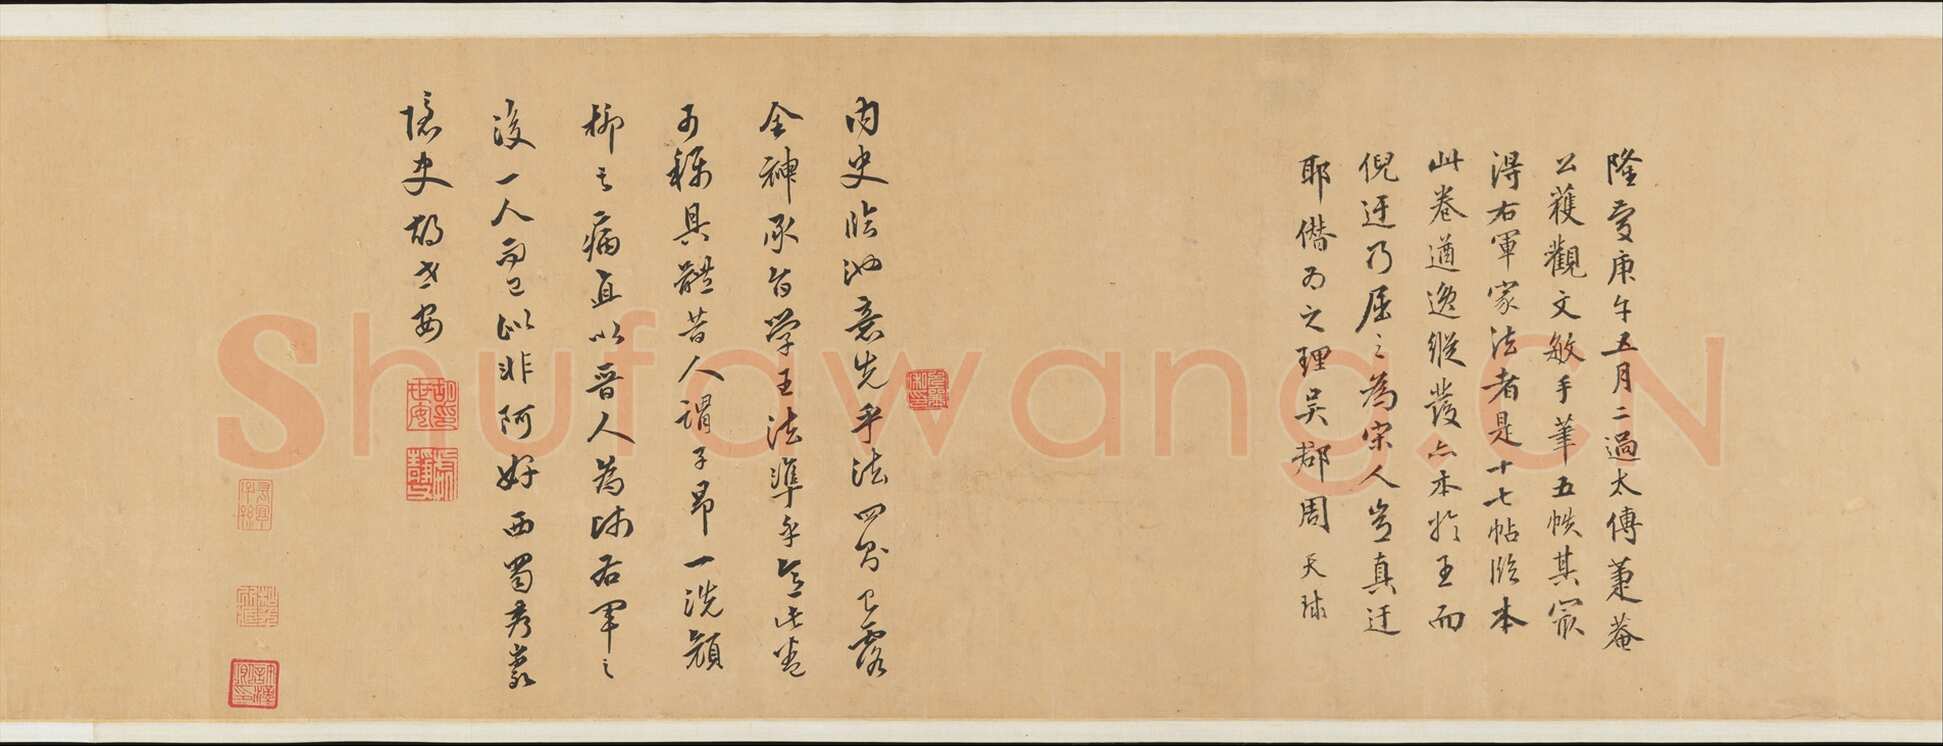 隆慶庚午五月二過太傅蒹菴
公獲觀文敏手筆五帙其最
得右軍家法者是十七帖臨本
此卷遒逸縱發亦本於王而
倪迂乃屈之為宋人豈真迂
耶僭為之理吳郡周天球
內史臨池意先乎法四分已露
全神承旨學王法準乎意此卷
可稱具體昔人謂子昂一洗顏
柳之病直以晉人為師右軍之
後一人而已似非阿好西蜀秀巖
隱史胡世安
Shufawang.CN